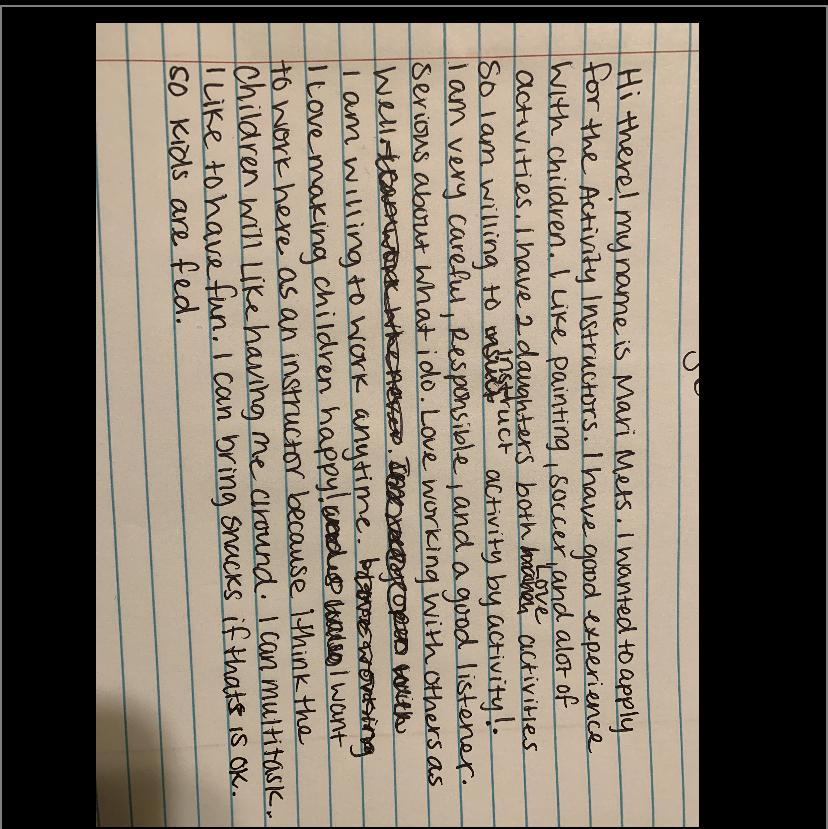 Hi there! my name is Mari Mets. I wanted to apply
for the Activity Instructors. I have good experience
with children. I like painting, soccer, and alot of
activities. I have 2 daughters both Love activities
so I am willing to instruct activity by activity!.
I am very careful, Responsible, and a good listener.
Serious about what i do. Love working with others as
well.
I am willing to work anytime.
I Love making children happy! I want
to work here as an instructor because i think the
Children will like having me around. I can multitask.
I Like to have fun. I can bring snacks if thats is ok.
so kids are fed.